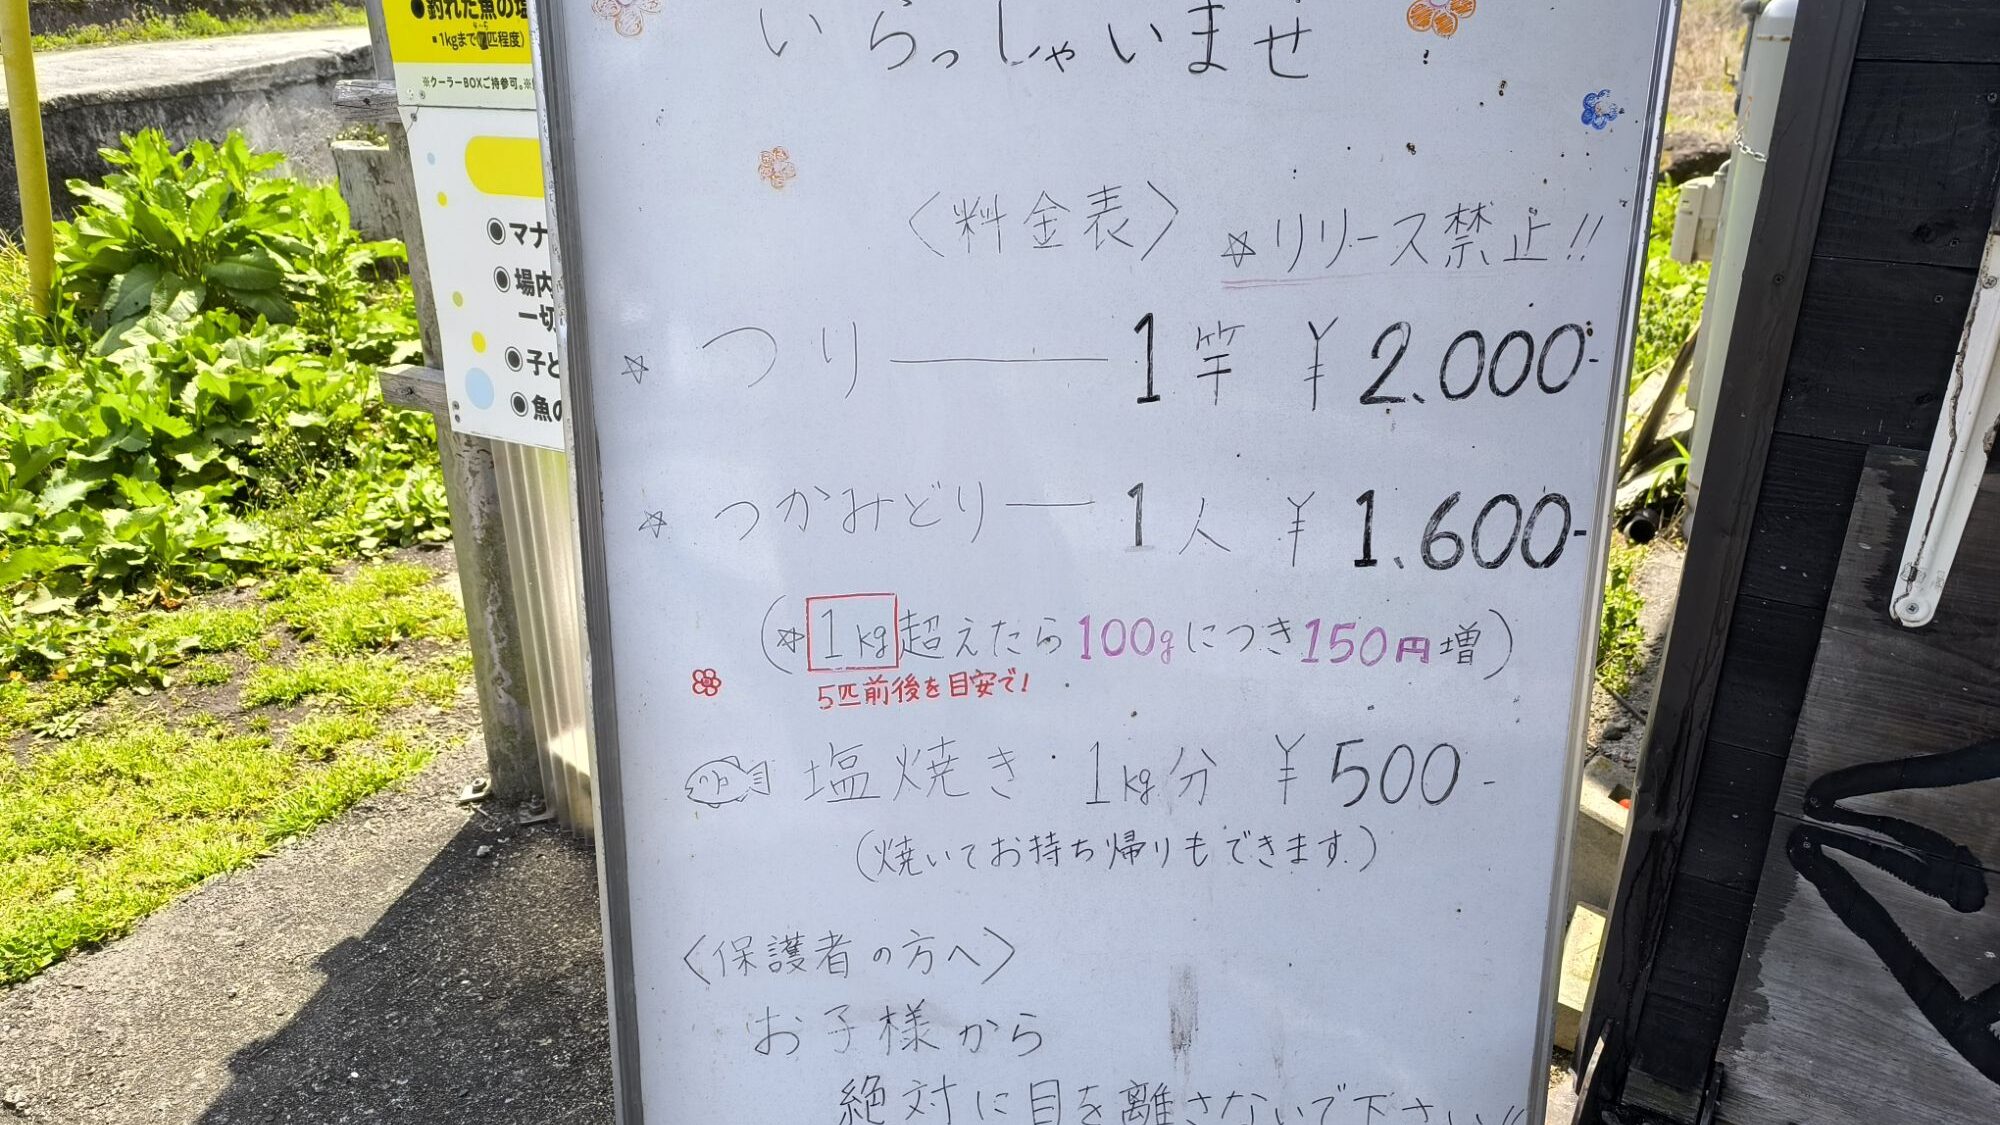 ●釣れた魚の塩
・1kgまで 匹程度)
※クーラーBOXご持参可。
◉マナ
◉場内
一切
◉子ど
◉魚の
いらっしゃいませ
〈料金表〉 ☆リリース禁止!!
☆ つり ─── 1竿 ¥2.000-
☆ つかみどり ─ 1人 ¥1.600-
(☆1kg超えたら100gにつき150円増)
5匹前後を目安で!
塩焼き 1kg分 ¥500-
(焼いてお持ち帰りもできます。)
〈保護者の方へ〉
お子様から
絶対に目を離さないで下さい!!